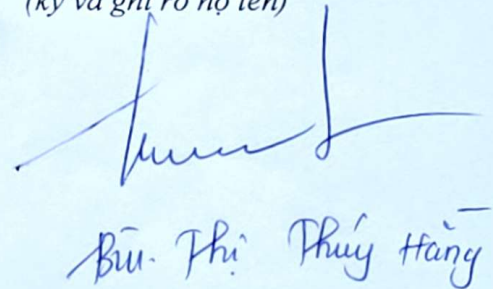 (ký và ghi rõ họ tên)
Bùi Thị Thúy Hằng